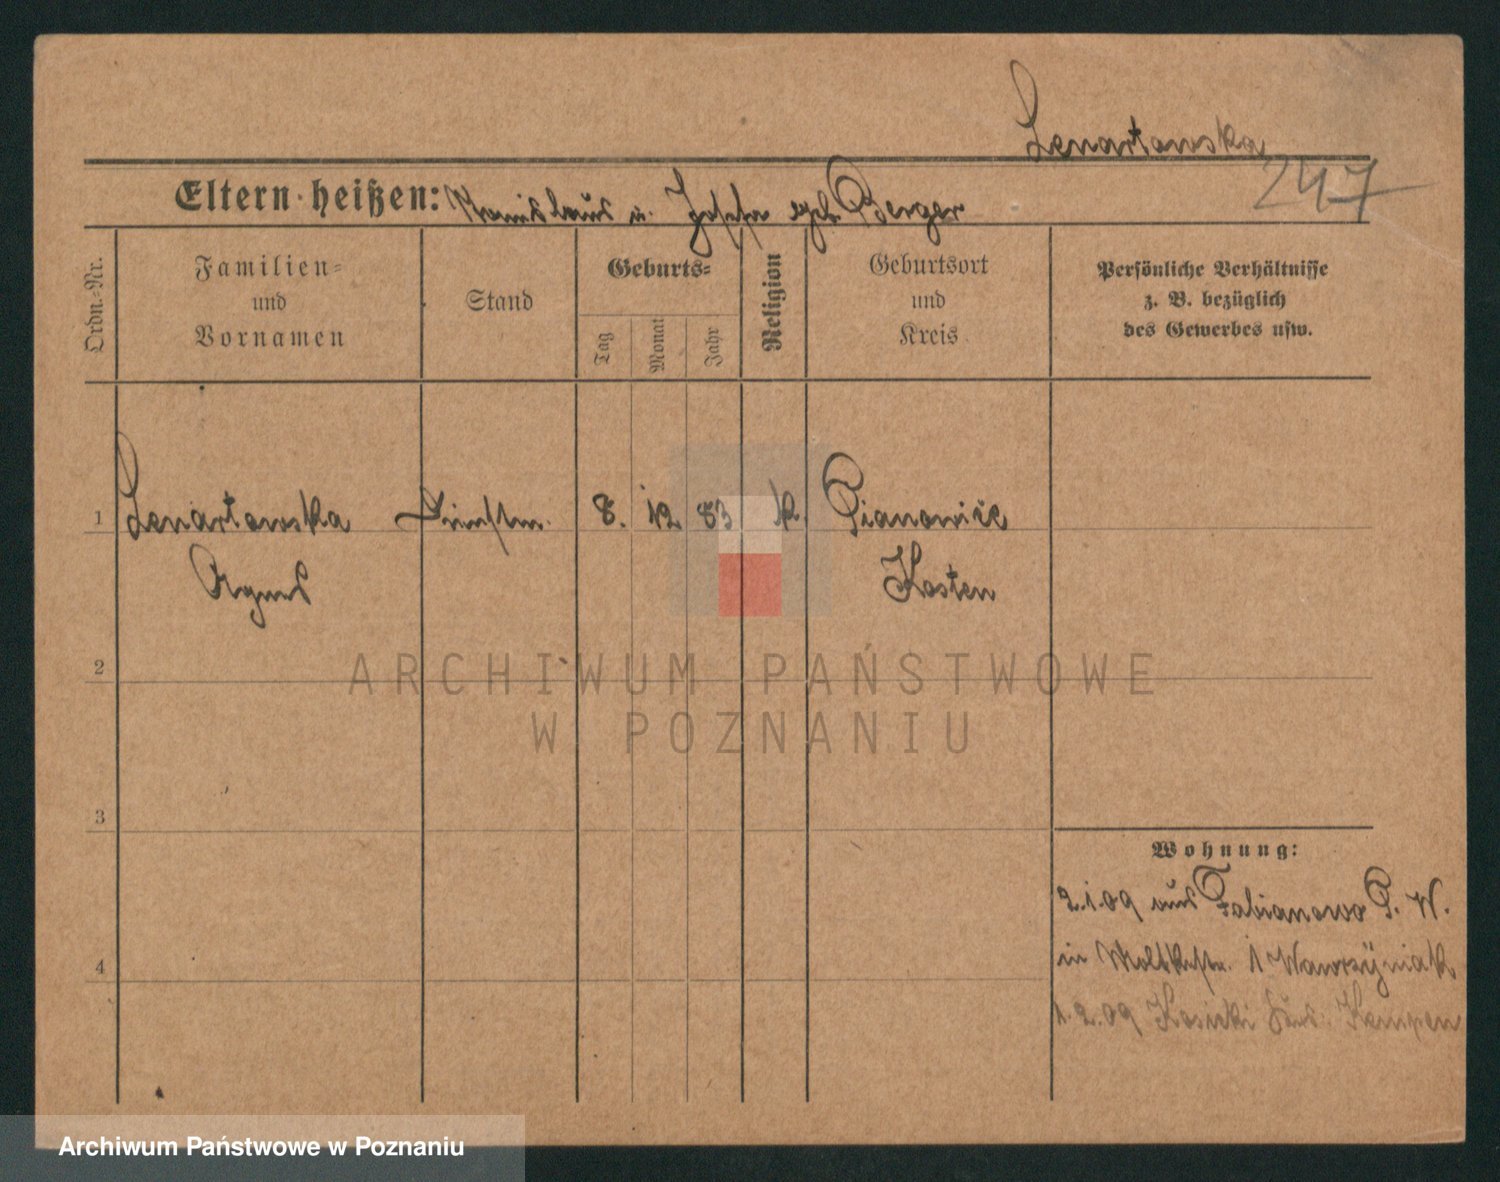 Lenartowska
247
Eltern heißen: Stanislaus u. Josefa geb. Berger
Ordn.-Nr.
Familien-
und
Vornamen
Stand
Geburts-
Tag
Monat
Jahr
Religion
Geburtsort
und
Kreis
Persönliche Verhältnisse
z. B. bezüglich
des Gewerbes usw.
1 Lenartowska 8. 12 83 k Pianowice
Agnes Kosten
2
ARCHIWUM PAŃSTWOWE
W POZNANIU
3
Wohnung:
2.1.09 aus Fabianowo P. W.
4
in Moltkestr. 1 Wawrzyniak
1.2.09 Kempen
Archiwum Państwowe w Poznaniu